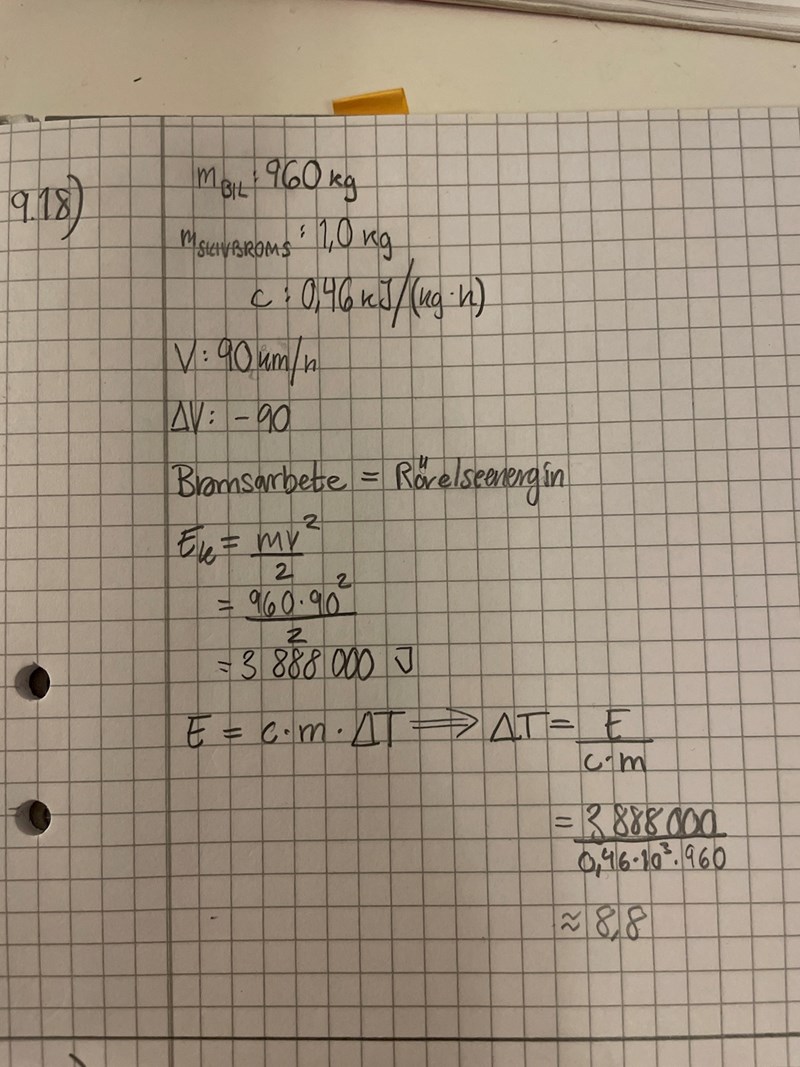 9.18)
m_BIL : 960 kg
m_SKIVBROMS : 1,0 kg
c : 0,46 kJ/(kg·K)
V : 90 km/h
ΔV : -90
Bromsarbete = Rörelseenergin
E_k = mv²/2
= 960·90²/2
= 3 888 000 J
E = c·m·ΔT ⟹ ΔT = E/c·m
= 3 888 000/0,46·10³·960
≈ 8,8